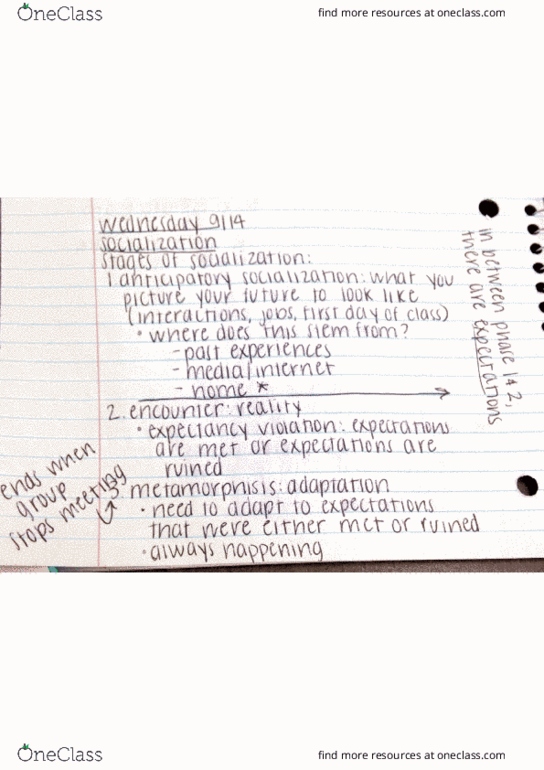 OneClass
find more resources at oneclass.com
wednesday 9/14
socialization
stages of socialization:
1. anticipatory socialization: what you
picture your future to look like
(interactions, jobs, first day of class)
• where does this stem from?
- past experiences
- media/internet
- home *
in between phase 1 & 2,
there are expectations
2. encounter: reality
• expectancy violation: expectations
are met or expectations are
ruined
3. metamorphisis: adaptation
• need to adapt to expectations
that were either met or ruined
• always happening
ends when
group
stops meeting
OneClass
find more resources at oneclass.com